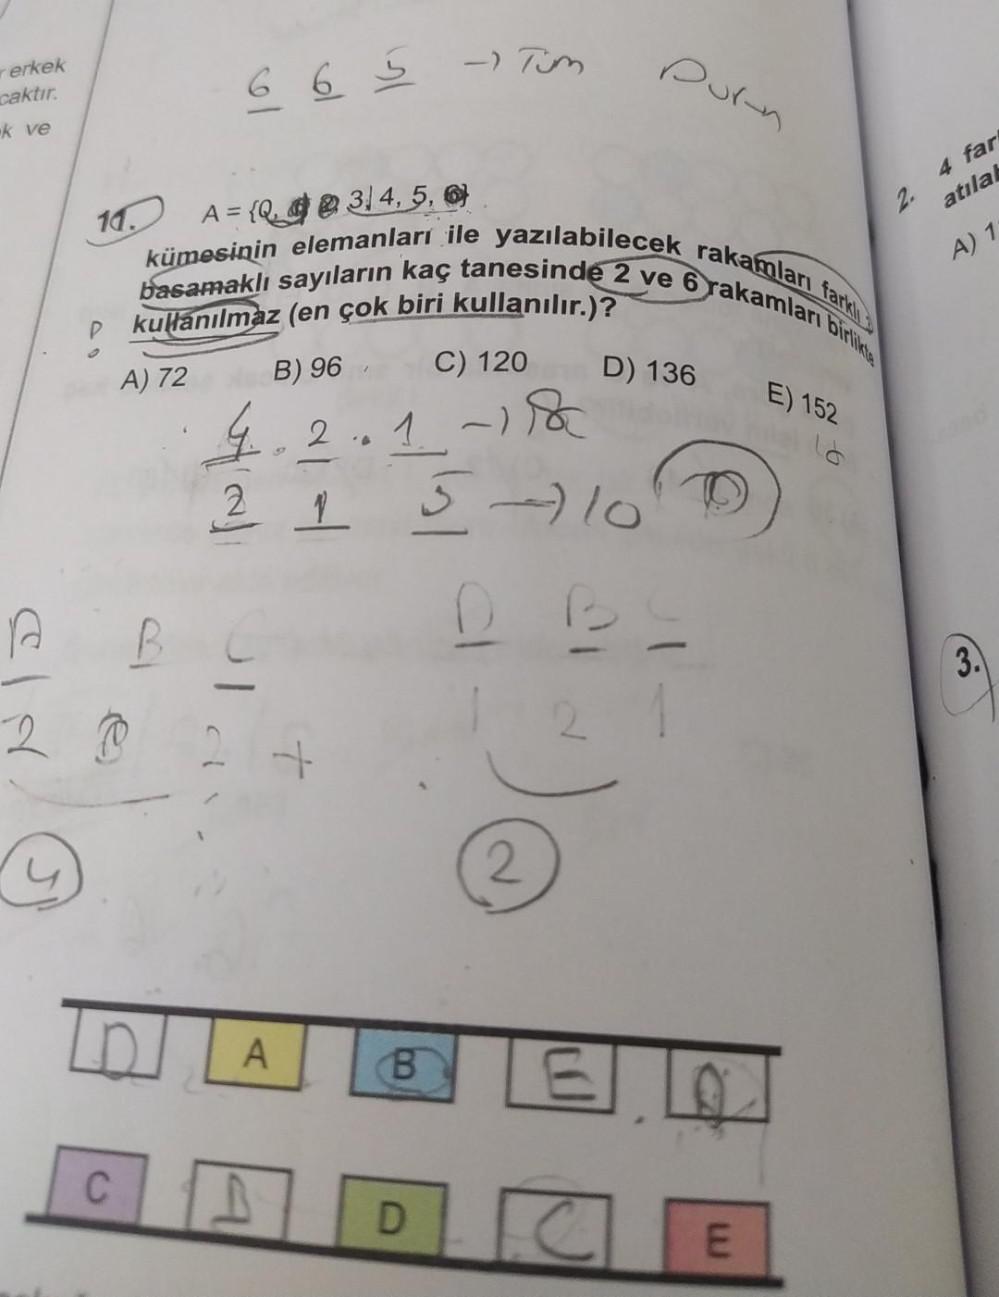 erkek
caktır.
k ve
6 6 5 → Tüm Durum
11. A = {0, 1, 2, 3, 4, 5, 6}
kümesinin elemanları ile yazılabilecek rakamları farklı 3
basamaklı sayıların kaç tanesinde 2 ve 6 rakamları birlikte
kullanılmaz (en çok biri kullanılır.)?
A) 72 B) 96 C) 120 D) 136 E) 152
4 . 2 . 1 →
2 1 5 → 10
A B C
2 2 +
4
D B C
1 2 1
2
D A B E
C B D C E
2. 4 far
atılal
A) 1
3.